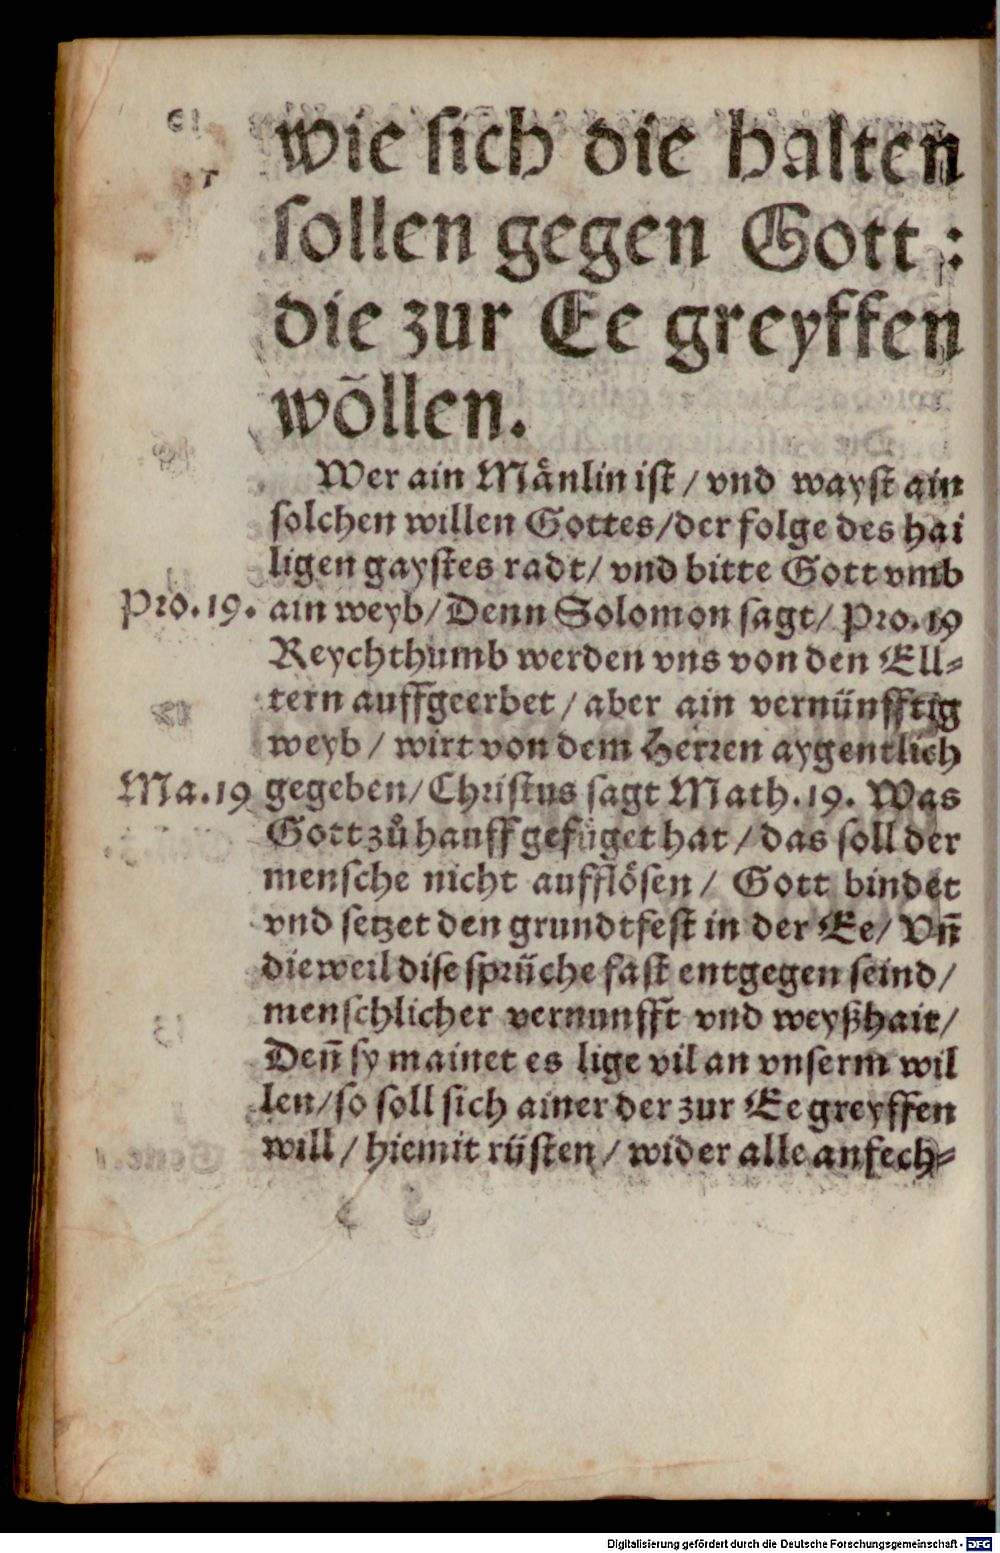 wie sich die halten
sollen gegen Gott:
die zur Ee greyffen
wöllen.
Wer ain Månlin ist / vnd wayst ain
solchen willen Gottes/der folge des hai
ligen gaystes radt/ vnd bitte Gott vmb
Pro.19. ain weyb/ Denn Solomon sagt/ Pro.19
Reychthumb werden vns von den Ell-
tern auffgeerbet / aber ain vernünfftig
weyb / wirt von dem Herren aygentlich
Ma.19 gegeben/ Christus sagt Math.19. Was
Gott zů hauff gefüget hat / das soll der
mensche nicht aufflösen / Gott bindet
vnd setzet den grundtfest in der Ee/ Vñ
dieweil dise sprüche fast entgegen seind/
menschlicher vernunfft vnd weyßhait/
Deñ sy mainet es lige vil an vnserm wil
len/so soll sich ainer der zur Ee greyffen
will / hiemit rüsten / wider alle anfech-
Digitalisierung gefördert durch die Deutsche Forschungsgemeinschaft - DFG